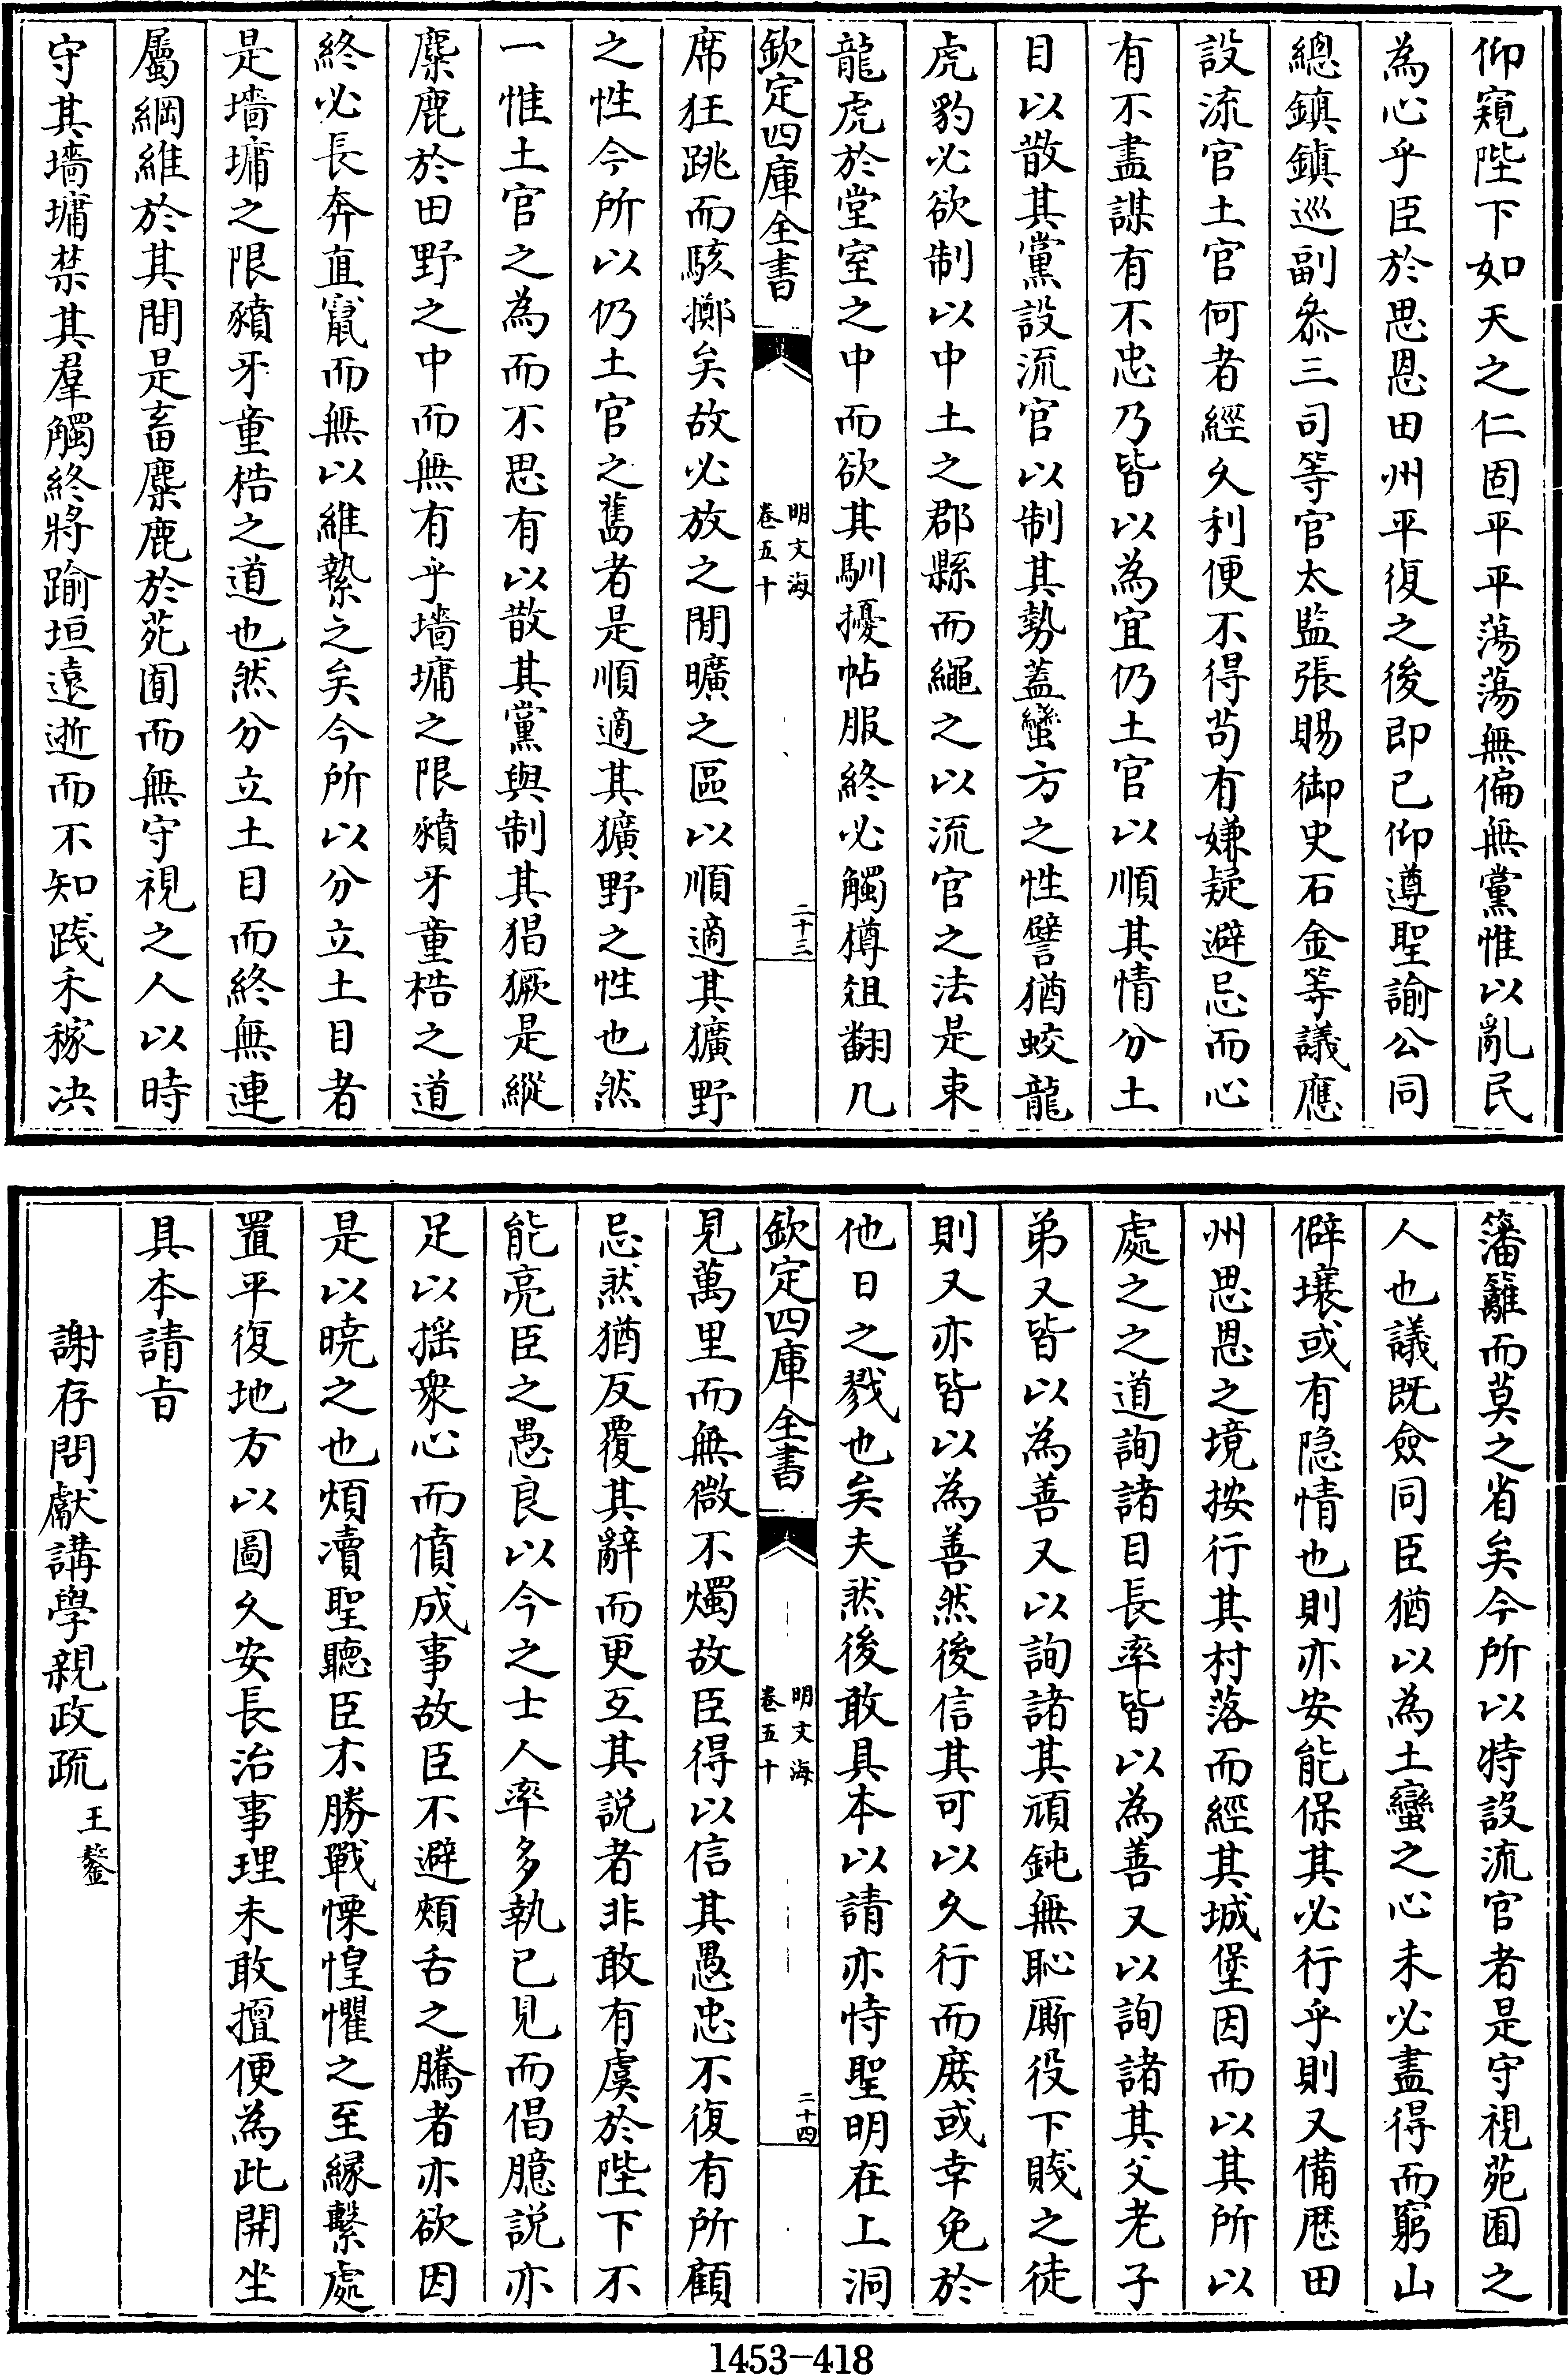 仰窺陛下如天之仁固平平蕩蕩無偏無黨惟以亂民
為心乎臣於思恩田州平復之後即已仰遵聖諭公同
總鎮鎮巡副叅三司等官太監張賜御史石金等議應
設流官土官何者經久利便不得苟有嫌疑避忌而心
有不盡謀有不忠乃皆以為宜仍土官以順其情分土
目以散其黨設流官以制其勢蓋蠻方之性譬猶蛟龍
虎豹必欲制以中土之郡縣而繩之以流官之法是束
龍虎於堂室之中而欲其馴擾帖服終必觸樽俎翻几
欽定四庫全書
明文海
卷五十
二十三
席狂跳而駭擲矣故必放之閒曠之區以順適其獷野
之性今所以仍土官之舊者是順適其獷野之性也然
一惟土官之為而不思有以散其黨與制其猖獗是縱
麋鹿於田野之中而無有乎墻墉之限豶牙童梏之道
終必長奔直竄而無以維縶之矣今所以分立土目者
是墻墉之限豶牙童梏之道也然分立土目而終無連
屬綱維於其間是畜麋鹿於苑囿而無守視之人以時
守其墻墉禁其羣觸終將踰垣遠逝而不知踐禾稼决
籓籬而莫之省矣今所以特設流官者是守視苑囿之
人也議既僉同臣猶以為土蠻之心未必盡得而窮山
僻壤或有隱情也則亦安能保其必行乎則又備歷田
州思恩之境按行其村落而經其城堡因而以其所以
處之之道詢諸目長率皆以為善又以詢諸其父老子
弟又皆以為善又以詢諸其頑鈍無恥厮役下賤之徒
則又亦皆以為善然後信其可以久行而庶或幸免於
他日之戮也矣夫然後敢具本以請亦恃聖明在上洞
欽定四庫全書
明文海
卷五十
二十四
見萬里而無微不燭故臣得以信其愚忠不復有所顧
忌然猶反覆其辭而更互其說者非敢有虞於陛下不
能亮臣之愚良以今之士人率多執已見而倡臆說亦
足以搖衆心而僨成事故臣不避頰舌之騰者亦欲因
是以曉之也煩瀆聖聽臣不勝戰慄惶懼之至緣繫處
置平復地方以圖久安長治事理未敢擅便為此開坐
具本請旨
謝存問獻講學親政疏
王鏊
1453-418